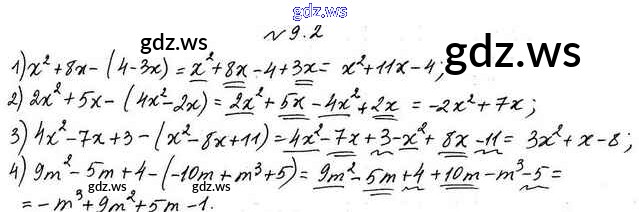 gdz.ws
№ 9.2
gdz.ws
gdz.ws
1) x² + 8x - (4 - 3x) = x² + 8x - 4 + 3x = x² + 11x - 4;
2) 2x² + 5x - (4x² - 2x) = 2x² + 5x - 4x² + 2x = -2x² + 7x;
3) 4x² - 7x + 3 - (x² - 8x + 11) = 4x² - 7x + 3 - x² + 8x - 11 = 3x² + x - 8;
4) 9m² - 5m + 4 - (-10m + m³ + 5) = 9m² - 5m + 4 + 10m - m³ - 5 =
gdz.ws
gdz.ws
= -m³ + 9m² + 5m - 1.